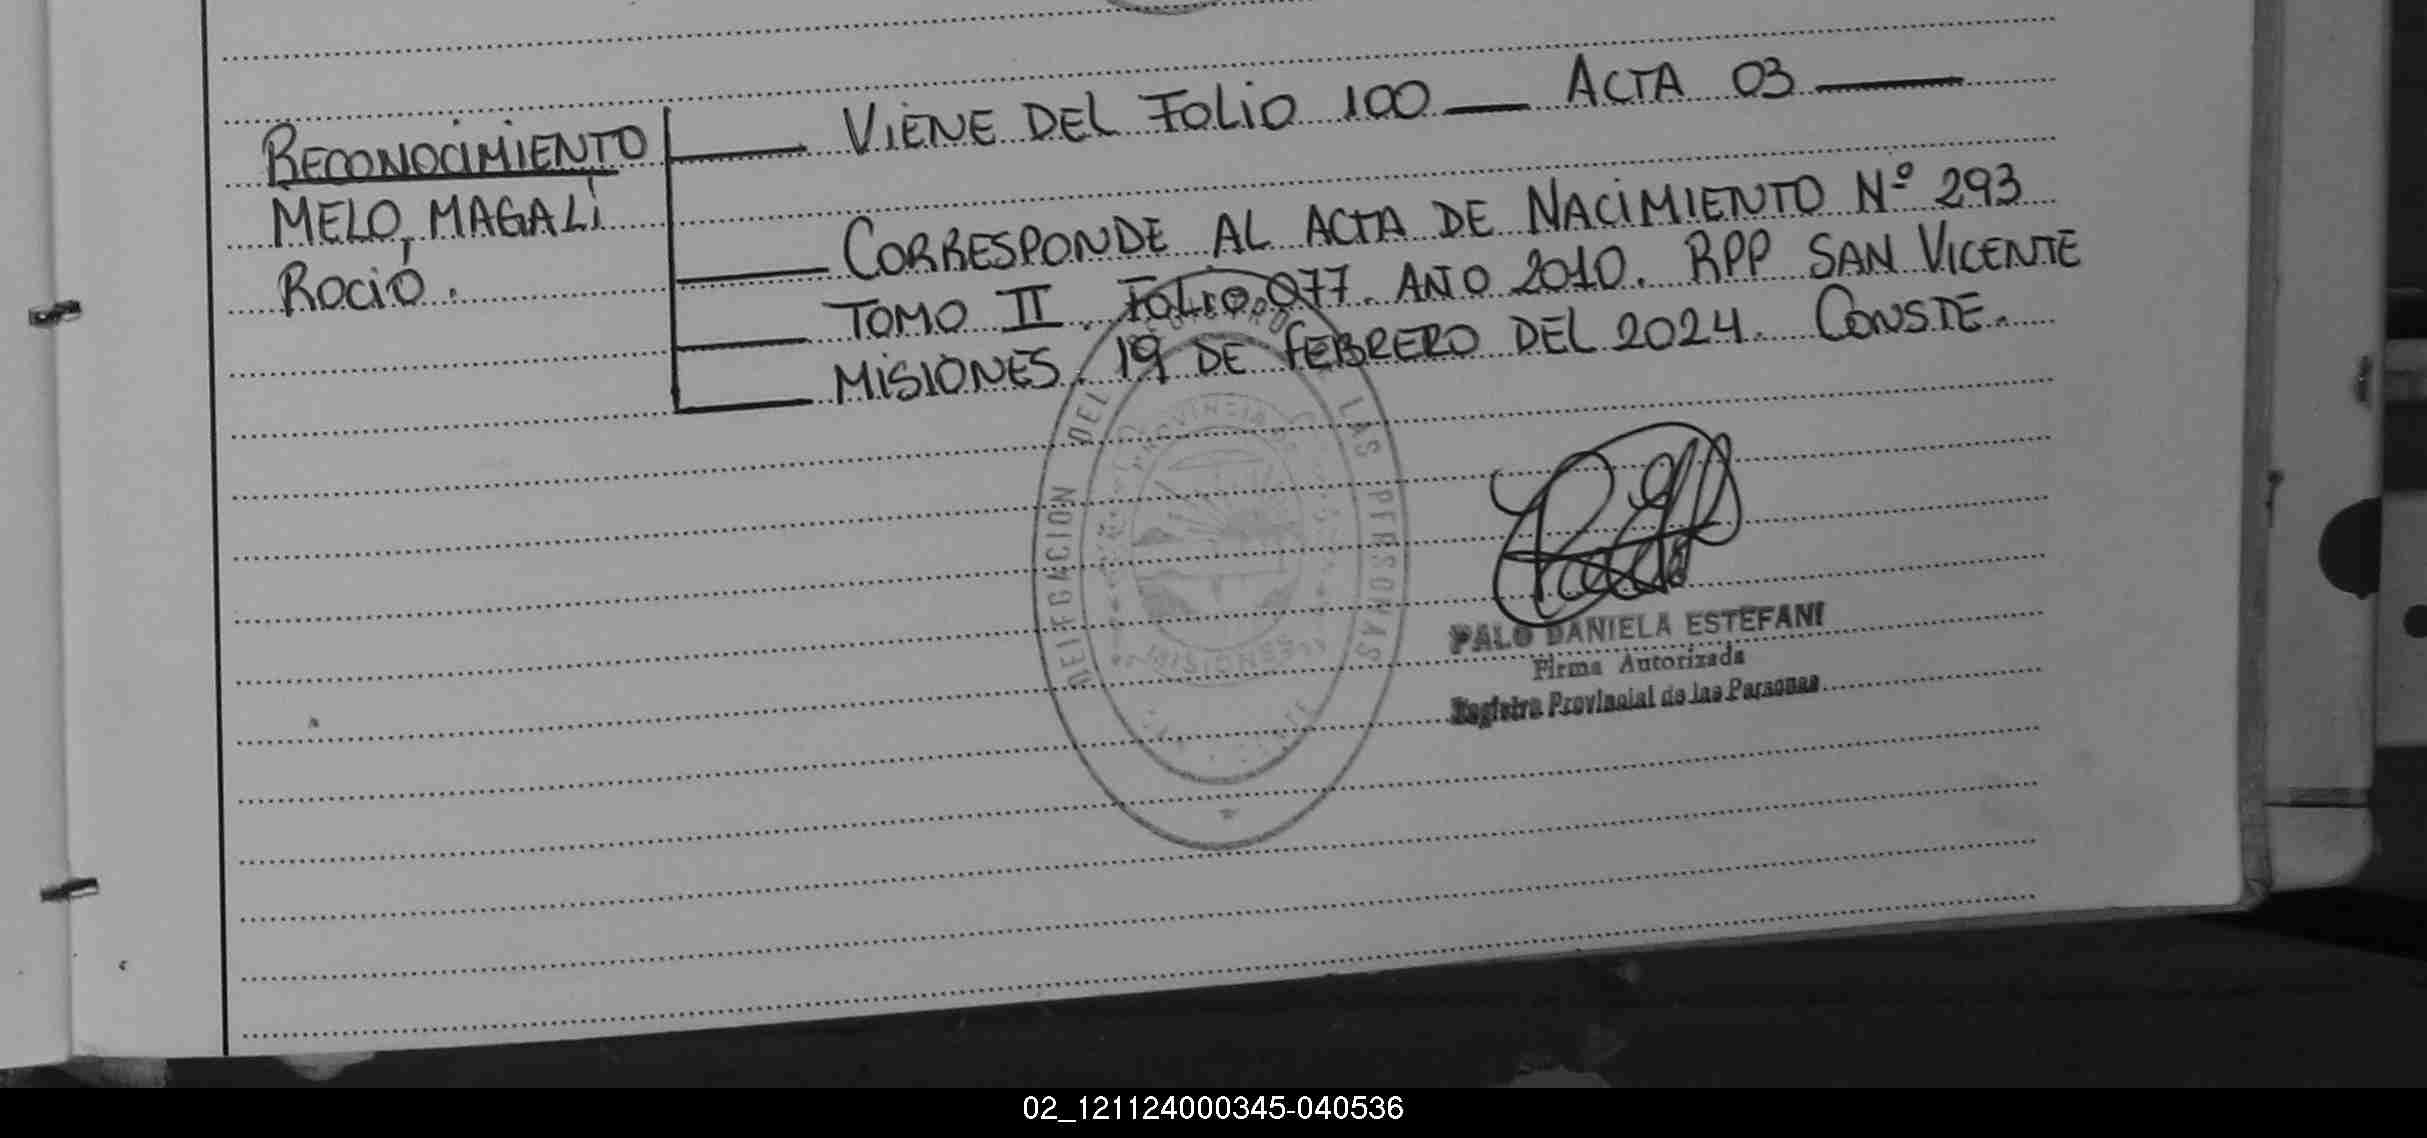 RECONOCIMIENTO
MELO, MAGALI
ROCIO.
VIENE DEL FOLIO 100 — ACTA 03 —
CORRESPONDE AL ACTA DE NACIMIENTO Nº 293
TOMO II. FOLIO 077. AÑO 2010. RPP SAN VICENTE
MISIONES. 19 DE FEBRERO DEL 2024. CONSTE.
DELEGACION DEL LAS PERSONAS
PROVINCIA DE
MISIONES
PALO DANIELA ESTEFANI
Firma Autorizada
Registro Provincial de las Personas
02_121124000345-040536